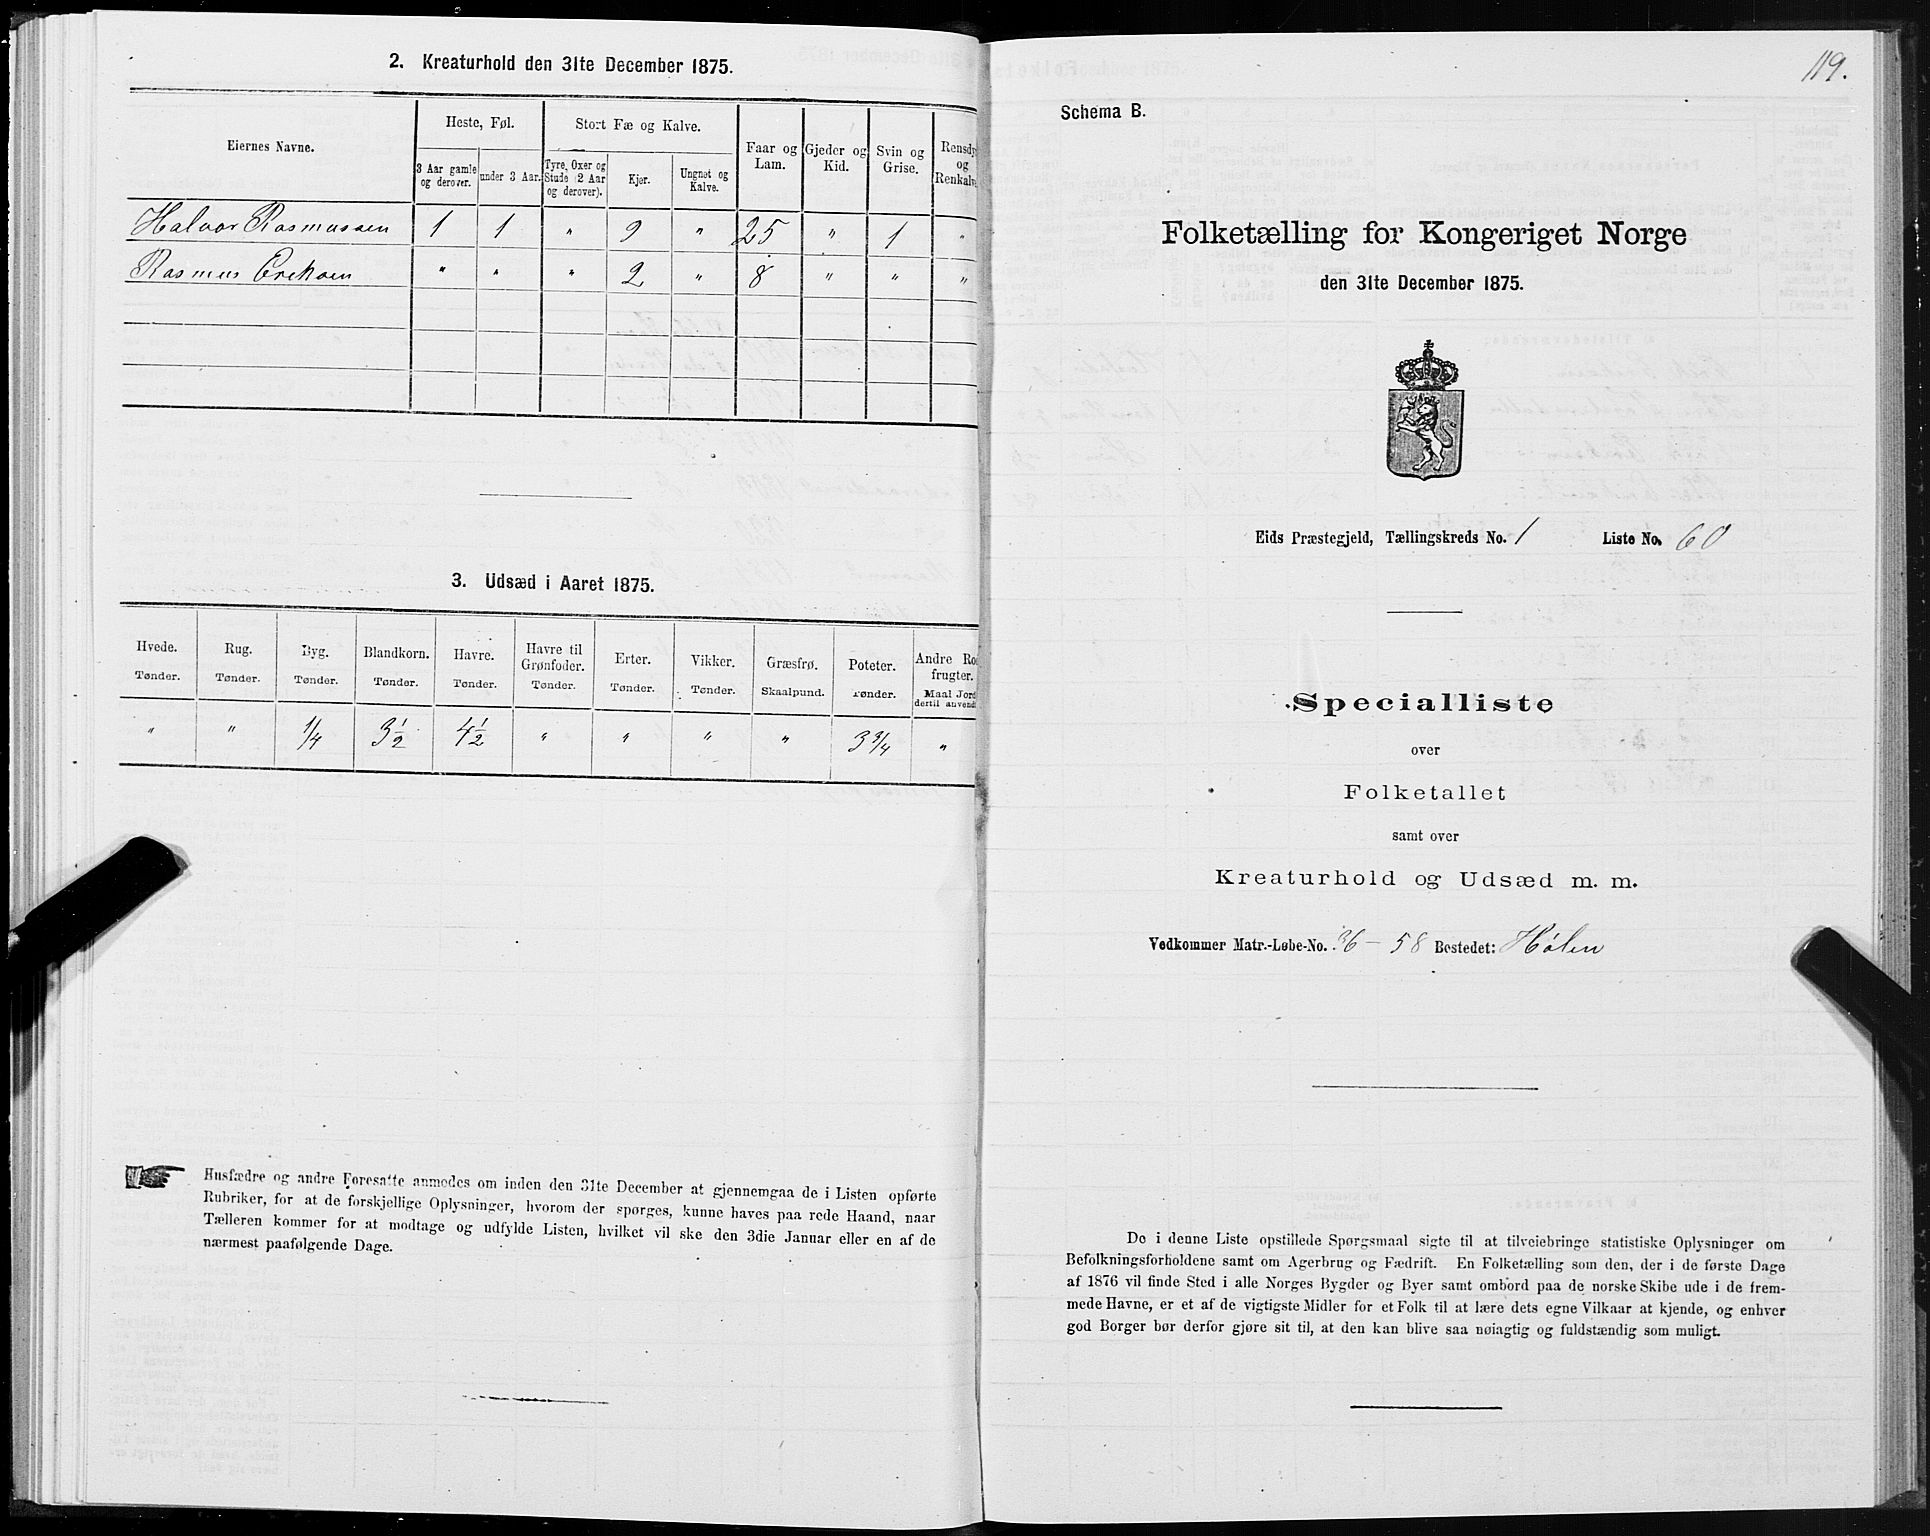 2. Kreaturhold den 31te December 1875.
Eiernes Navne.
Heste, Føl.
Stort Fæ og Kalve.
Faar og Lam.
Gjeder og Kid.
Svin og Grise.
Rensdy og Renkalve
3 Aar gamle og derover.
under 3 Aar.
Tyre, Oxer og Stude (2 Aar og derover).
Kjer.
Ungnøt og Kalve.
Halvor Rasmussen 1 1 " 9 " 25 " 1 "
Rasmus Ereksen " " " 2 " 8 " " "
3. Udsæd i Aaret 1875.
Hvede. Rug. Byg. Blandkorn. Havre. Havre til Grønfoder. Erter. Vikker. Græsfrø. Poteter. Andre Ro frugter.
Tønder. Tønder. Tønder. Tønder. Tønder. Tønder. Tønder. Tønder. Skaalpund. Tønder. Maal Jord dertil anvendt
" " 1/4 3 1/2 4 1/2 " " " " 3 3/4 "
Husfædre og andre Foresatte anmodes om inden den 31te December at gjennemgaa de i Listen opførte
Rubriker, for at de forskjellige Oplysninger, hvorom der spørges, kunne haves paa rede Haand, naar
Tælleren kommer for at modtage og udfylde Listen, hvilket vil ske den 3die Januar eller en af de
nærmest paafølgende Dage.
119.
Schema B.
Folketælling for Kongeriget Norge
den 31te December 1875.
Eids Præstegjeld, Tællingskreds No. 1 Liste No. 60
Specialliste
over
Folketallet
samt over
Kreaturhold og Udsæd m. m.
Vedkommer Matr.-Løbe-No. 36 - 58 Bostedet: Hólen
De i denne Liste opstillede Spørgsmaal sigte til at tilveiebringe statistiske Oplysninger om
Befolkningsforholdene samt om Agerbrug og Fædrift. En Folketælling som den, der i de første Dage
af 1876 vil finde Sted i alle Norges Bygder og Byer samt ombord paa de norske Skibe ude i de frem-
mede Havne, er et af de vigtigste Midler for et Folk til at lære dets egne Vilkaar at kjende, og enhver
god Borger bør derfor gjøre sit til, at den kan blive saa nøiagtig og fuldstændig som muligt.